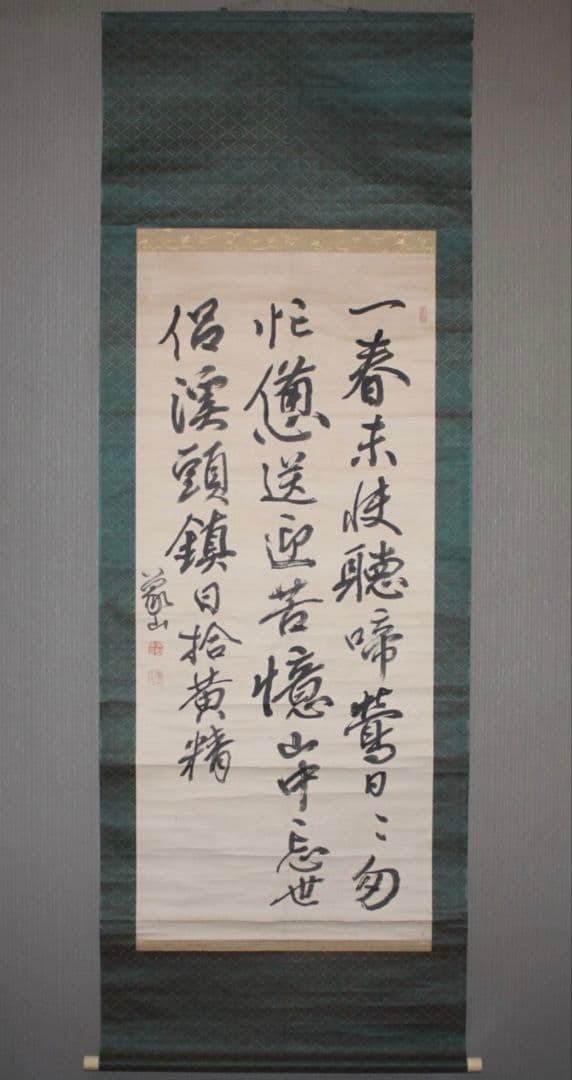 一春未快聽啼鶯日々匆
忙憊送迎苦憶山中忘世
侶溪頭鎮日拾黄精
蒙山